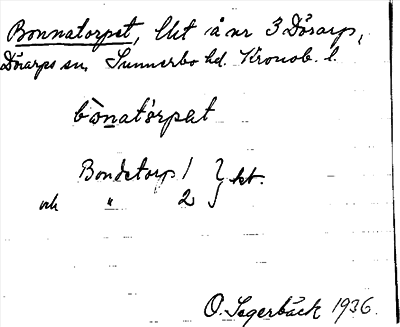 Bonnatorpet, lht å nr 3 Dörarp,
Dörarps sn, Sunnerbo hd. Kronob. l.
bònatòrpat
Bondetorp 1 } kt.
och " 2
O. Segerbäck 1936.